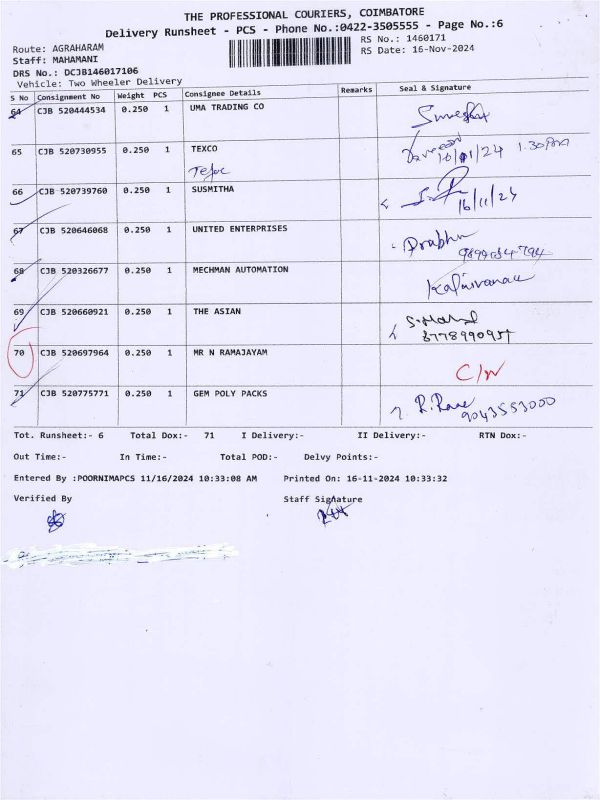 THE PROFESSIONAL COURIERS, COIMBATORE
Delivery Runsheet - PCS - Phone No.:0422-3505555 - Page No.:6
Route: AGRAHARAM
RS No.: 1460171
Staff: MAHAMANI
RS Date: 16-Nov-2024
DRS No.: DCJB146017106
Vehicle: Two Wheeler Delivery
S No Consignment No Weight PCS Consignee Details Remarks Seal & Signature
64 CJB 520444534 0.250 1 UMA TRADING CO
65 CJB 520730955 0.250 1 TEXCO
16/11/24 1.30pm
66 CJB 520739760 0.250 1 SUSMITHA
16/11/24
67 CJB 520646068 0.250 1 UNITED ENTERPRISES
Prabhu
68 CJB 520326677 0.250 1 MECHMAN AUTOMATION
69 CJB 520660921 0.250 1 THE ASIAN
70 CJB 520697964 0.250 1 MR N RAMAJAYAM
71 CJB 520775771 0.250 1 GEM POLY PACKS
9043553000
Tot. Runsheet:- 6 Total Dox:- 71 I Delivery:- II Delivery:- RTN Dox:-
Out Time:- In Time:- Total POD:- Delvy Points:-
Entered By :POORNIMAPCS 11/16/2024 10:33:08 AM Printed On: 16-11-2024 10:33:32
Verified By Staff Signature